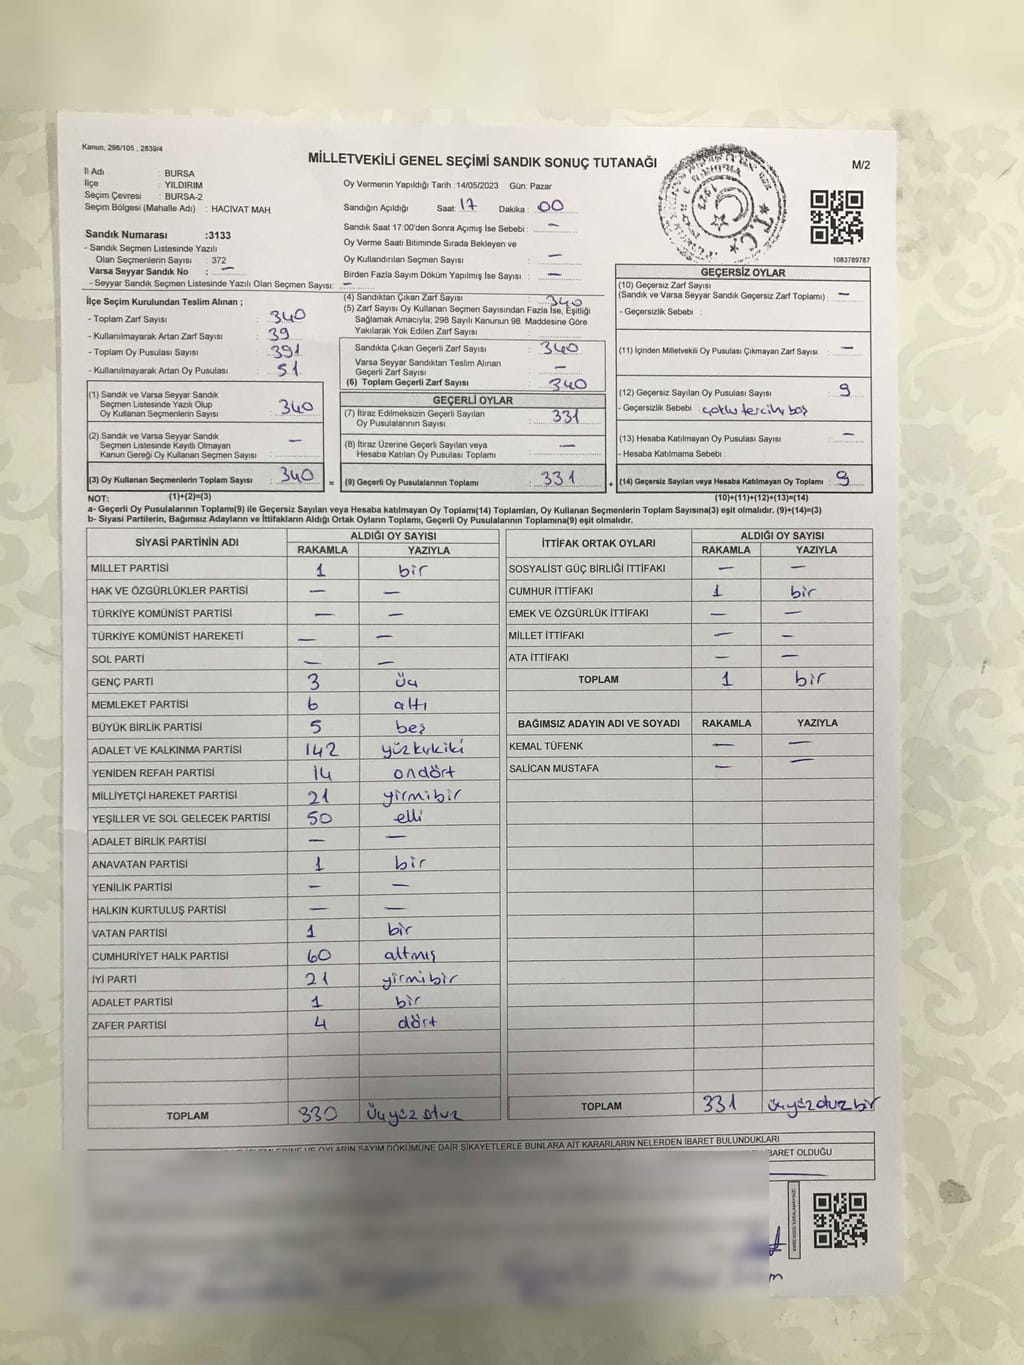 Kanun, 298/105 , 2839/4
MİLLETVEKİLİ GENEL SEÇİMİ SANDIK SONUÇ TUTANAĞI
M/2
İl Adı : BURSA
İlçe : YILDIRIM
Seçim Çevresi : BURSA-2
Seçim Bölgesi (Mahalle Adı) : HACİVAT MAH
Oy Vermenin Yapıldığı Tarih :14/05/2023 Gün: Pazar
Sandığın Açıldığı Saat: 17 Dakika : 00
Sandık Saat 17:00'den Sonra Açımış İse Sebebi : —
Oy Verme Saati Bitiminde Sırada Bekleyen ve
Oy Kullandırılan Seçmen Sayısı : —
Birden Fazla Sayım Döküm Yapılmış İse Sayısı : —
T.C.
1083789787
Sandık Numarası :3133
- Sandık Seçmen Listesinde Yazılı
Olan Seçmenlerin Sayısı : 372
Varsa Seyyar Sandık No : —
- Seyyar Sandık Seçmen Listesinde Yazılı Olan Seçmen Sayısı: —
İlçe Seçim Kurulundan Teslim Alınan ;
- Toplam Zarf Sayısı : 340
- Kullanılmayarak Artan Zarf Sayısı : 39
- Toplam Oy Pusulası Sayısı : 391
- Kullanılmayarak Artan Oy Pusulası : 51
(1) Sandık ve Varsa Seyyar Sandık
Seçmen Listesinde Yazılı Olup
Oy Kullanan Seçmenlerin Sayısı : 340
(2) Sandık ve Varsa Seyyar Sandık
Seçmen Listesinde Kayıtlı Olmayan
Kanun Gereği Oy Kullanan Seçmen Sayısı : —
(3) Oy Kullanan Seçmenlerin Toplam Sayısı : 340
(4) Sandıktan Çıkan Zarf Sayısı : 340
(5) Zarf Sayısı Oy Kullanan Seçmen Sayısından Fazla İse, Eşitliği
Sağlamak Amacıyla; 298 Sayılı Kanunun 98. Maddesine Göre
Yakılarak Yok Edilen Zarf Sayısı :
Sandıkta Çıkan Geçerli Zarf Sayısı : 340
Varsa Seyyar Sandıktan Teslim Alınan
Geçerli Zarf Sayısı : —
(6) Toplam Geçerli Zarf Sayısı : 340
GEÇERLİ OYLAR
(7) İtiraz Edilmeksizin Geçerli Sayılan
Oy Pusulalarının Sayısı : 331
(8) İtiraz Üzerine Geçerli Sayılan veya
Hesaba Katılan Oy Pusulası Toplamı : —
= (9) Geçerli Oy Pusulalarının Toplamı : 331
GEÇERSİZ OYLAR
(10) Geçersiz Zarf Sayısı
(Sandık ve Varsa Seyyar Sandık Geçersiz Zarf Toplamı) : —
- Geçersizlik Sebebi :
(11) İçinden Milletvekili Oy Pusulası Çıkmayan Zarf Sayısı : —
(12) Geçersiz Sayılan Oy Pusulası Sayısı : 9
- Geçersizlik Sebebi : çoklu tercih, boş
(13) Hesaba Katılmayan Oy Pusulası Sayısı : —
- Hesaba Katılmama Sebebi :
+ (14) Geçersiz Sayılan veya Hesaba Katılmayan Oy Toplamı : 9
NOT: (1)+(2)=(3) (10)+(11)+(12)+(13)=(14)
a- Geçerli Oy Pusulasının Toplamı(9) ile Geçersiz Sayılan veya Hesaba katılmayan Oy Toplamı(14) Toplamları, Oy Kullanan Seçmenlerin Toplam Sayısına(3) eşit olmalıdır. (9)+(14)=(3)
b- Siyasi Partilerin, Bağımsız Adayların ve İttifakların Aldığı Ortak Oyların Toplamı, Geçerli Oy Pusulalarının Toplamına(9) eşit olmalıdır.
SİYASİ PARTİNİN ADI ALDIĞI OY SAYISI
RAKAMLA YAZIYLA
MİLLET PARTİSİ 1 bir
HAK VE ÖZGÜRLÜKLER PARTİSİ — —
TÜRKİYE KOMÜNİST PARTİSİ — —
TÜRKİYE KOMÜNİST HAREKETİ — —
SOL PARTİ — —
GENÇ PARTİ 3 üç
MEMLEKET PARTİSİ 6 altı
BÜYÜK BİRLİK PARTİSİ 5 beş
ADALET VE KALKINMA PARTİSİ 142 yüzkırkiki
YENİDEN REFAH PARTİSİ 14 ondört
MİLLİYETÇİ HAREKET PARTİSİ 21 yirmibir
YEŞİLLER VE SOL GELECEK PARTİSİ 50 elli
ADALET BİRLİK PARTİSİ — —
ANAVATAN PARTİSİ 1 bir
YENİLİK PARTİSİ — —
HALKIN KURTULUŞ PARTİSİ — —
VATAN PARTİSİ 1 bir
CUMHURİYET HALK PARTİSİ 60 altmış
İYİ PARTİ 21 yirmibir
ADALET PARTİSİ 1 bir
ZAFER PARTİSİ 4 dört
TOPLAM 330 üçyüz otuz
İTTİFAK ORTAK OYLARI ALDIĞI OY SAYISI
RAKAMLA YAZIYLA
SOSYALİST GÜÇ BİRLİĞİ İTTİFAKI — —
CUMHUR İTTİFAKI 1 bir
EMEK VE ÖZGÜRLÜK İTTİFAKI — —
MİLLET İTTİFAKI — —
ATA İTTİFAKI — —
TOPLAM 1 bir
BAĞIMSIZ ADAYIN ADI VE SOYADI RAKAMLA YAZIYLA
KEMAL TÜFENK — —
SALİCAN MUSTAFA — —
TOPLAM 331 üçyüz otuz bir
OYLARIN SAYIM DÖKÜMÜNE DAİR ŞİKAYETLERLE BUNLARA AİT KARARLARIN NELERDEN İBARET BULUNDUKLARI
İBARET OLDUĞU